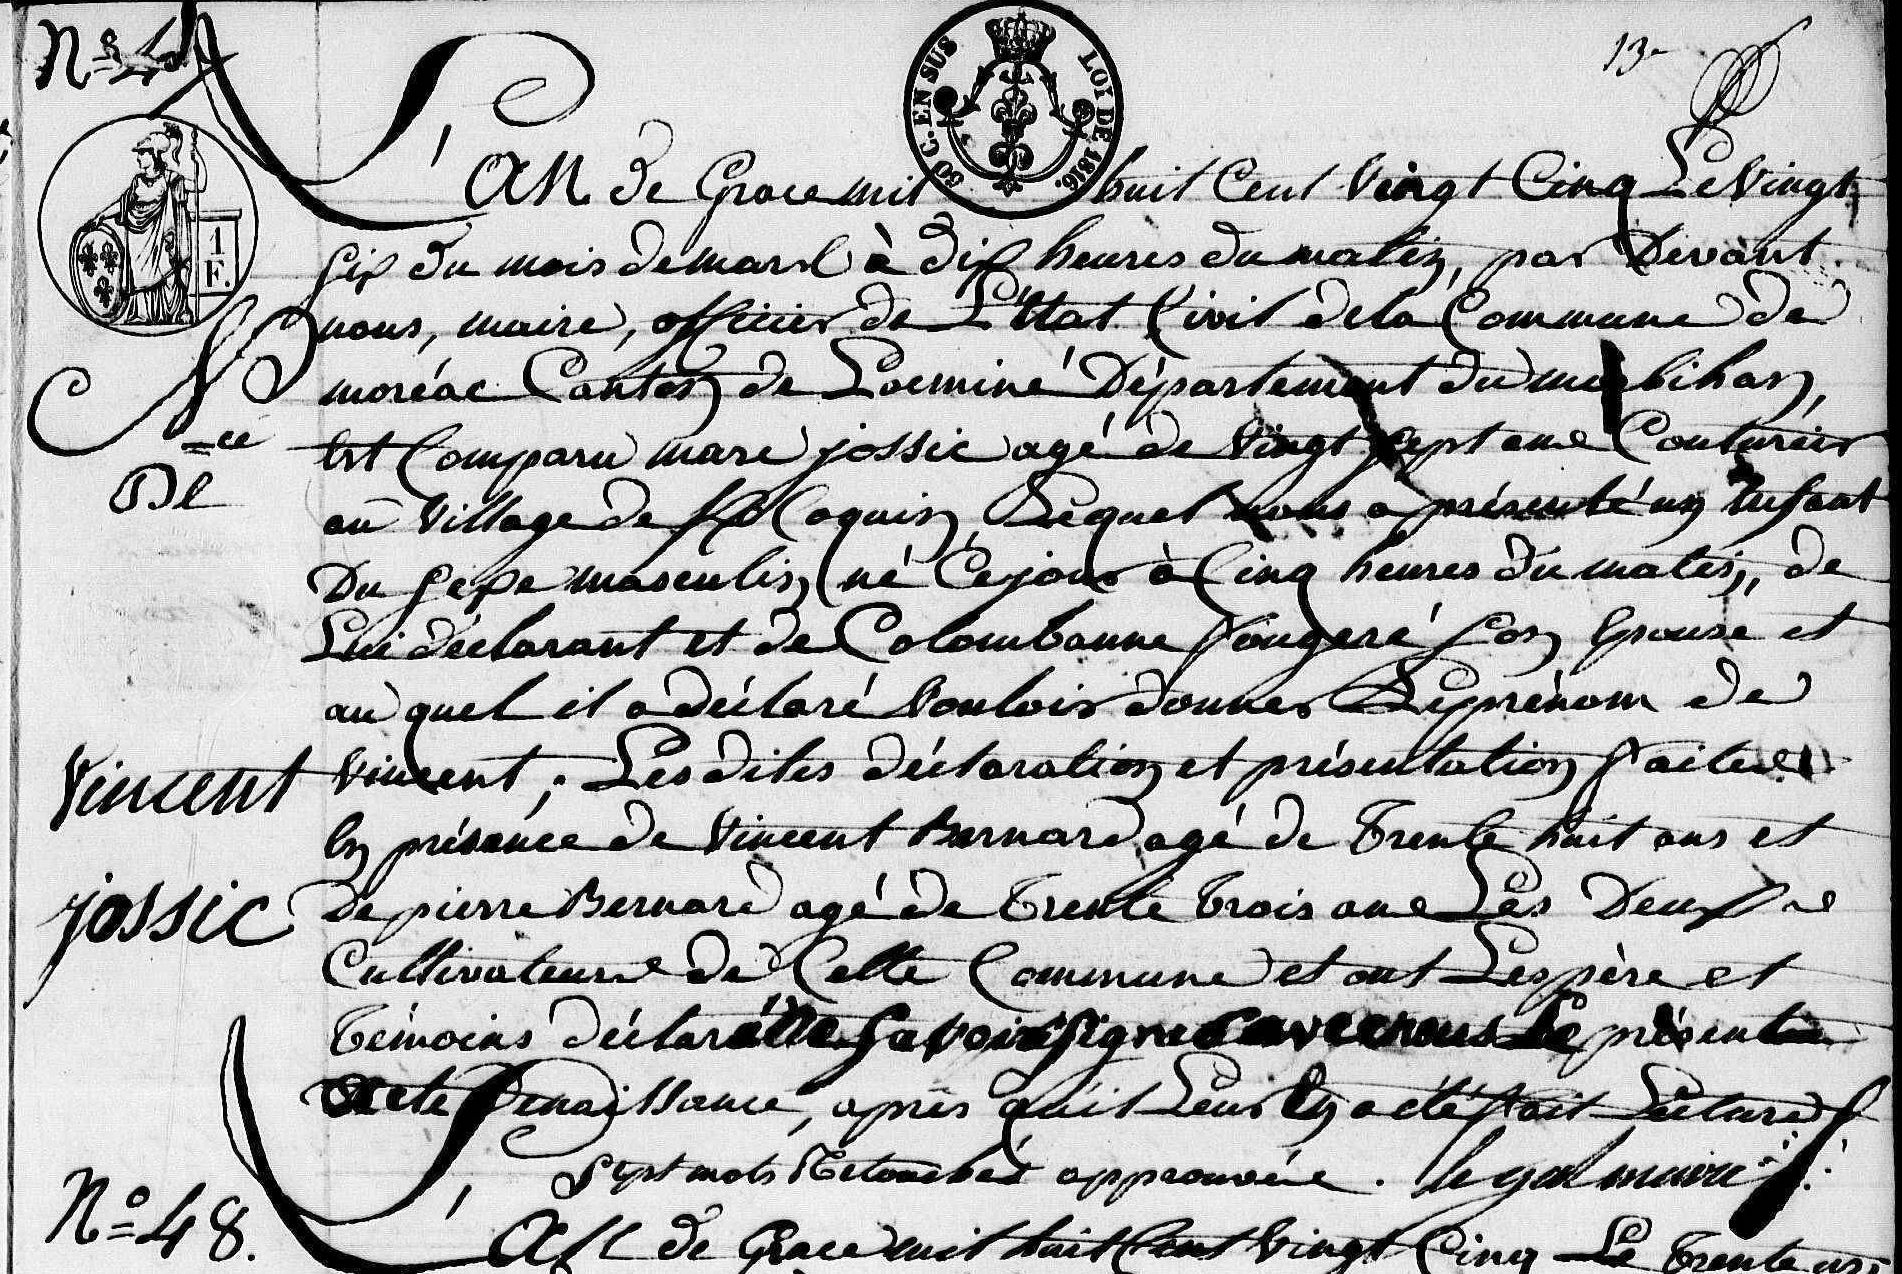 N° 47
50 C. EN SUS
LOI DE 1816.
13
L'an de Grace mil huit Cent Vingt Cinq Le Vingt
1
F.
six du mois de mars à dix heures du matin, par Devant
nous, maire, officier de L'Etat Civil de la Commune de
moréac Canton de Locminé Département du morbihan,
N
ce
De
Est Comparu marc jossic agé de Vingt sept ans Couturier
au Village de Coquin, Lequel nous a présenté un Enfant
Du sexe masculin, né Ce jour à Cinq heures du matin, de
Lui déclarant et de Colombanne fougeré son Epouse et
au quel il a déclaré Vouloir donner Le prénom de
Vincent
Vincent; Les dites déclaration et présentation faites
En présence de Vincent Bernard agé de Trente huit ans et
jossic
De pierre Bernard agé de Trente Trois ans Les Deux
Cultivateurs de Cette Commune et ont Les père et
Témoins déclaré ne savoir signer avec nous Le présent
acte De naissance, après qu'il Leur En a été fait Lecture
sept mots Retouchés approuvés. le gal maire
N° 48.
L'An de Grace mil huit Cent Vingt Cinq Le Trente un